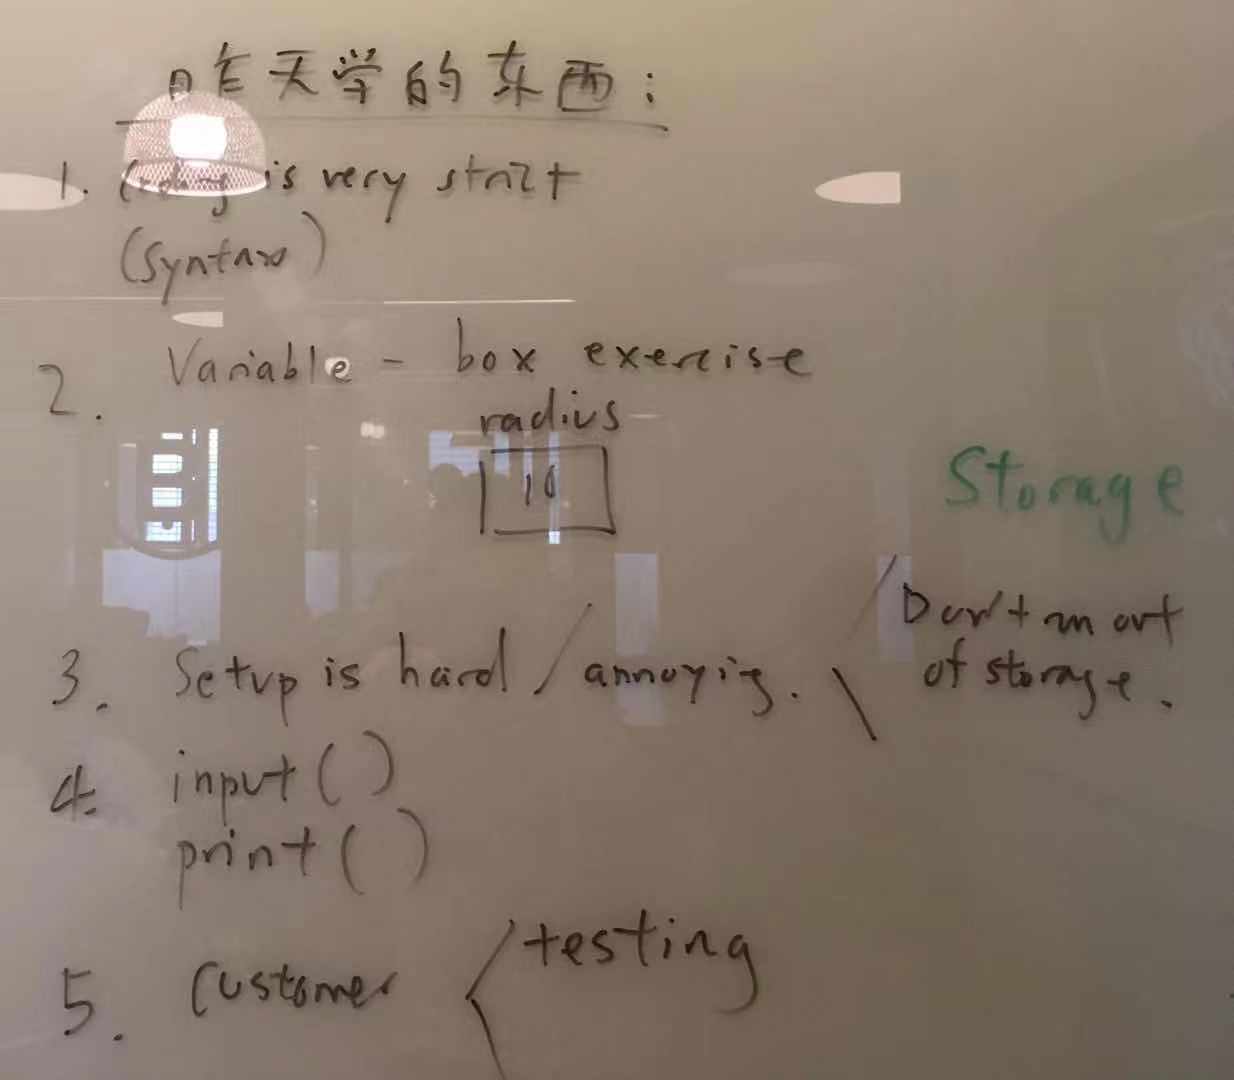 昨天学的东西:
1. Coding is very strict
(Syntax)
2. Variable - box exercise
radius
10
Storage
3. Setup is hard / annoying.
Don't run out
of storage.
4. input( )
print( )
5. Customer
testing